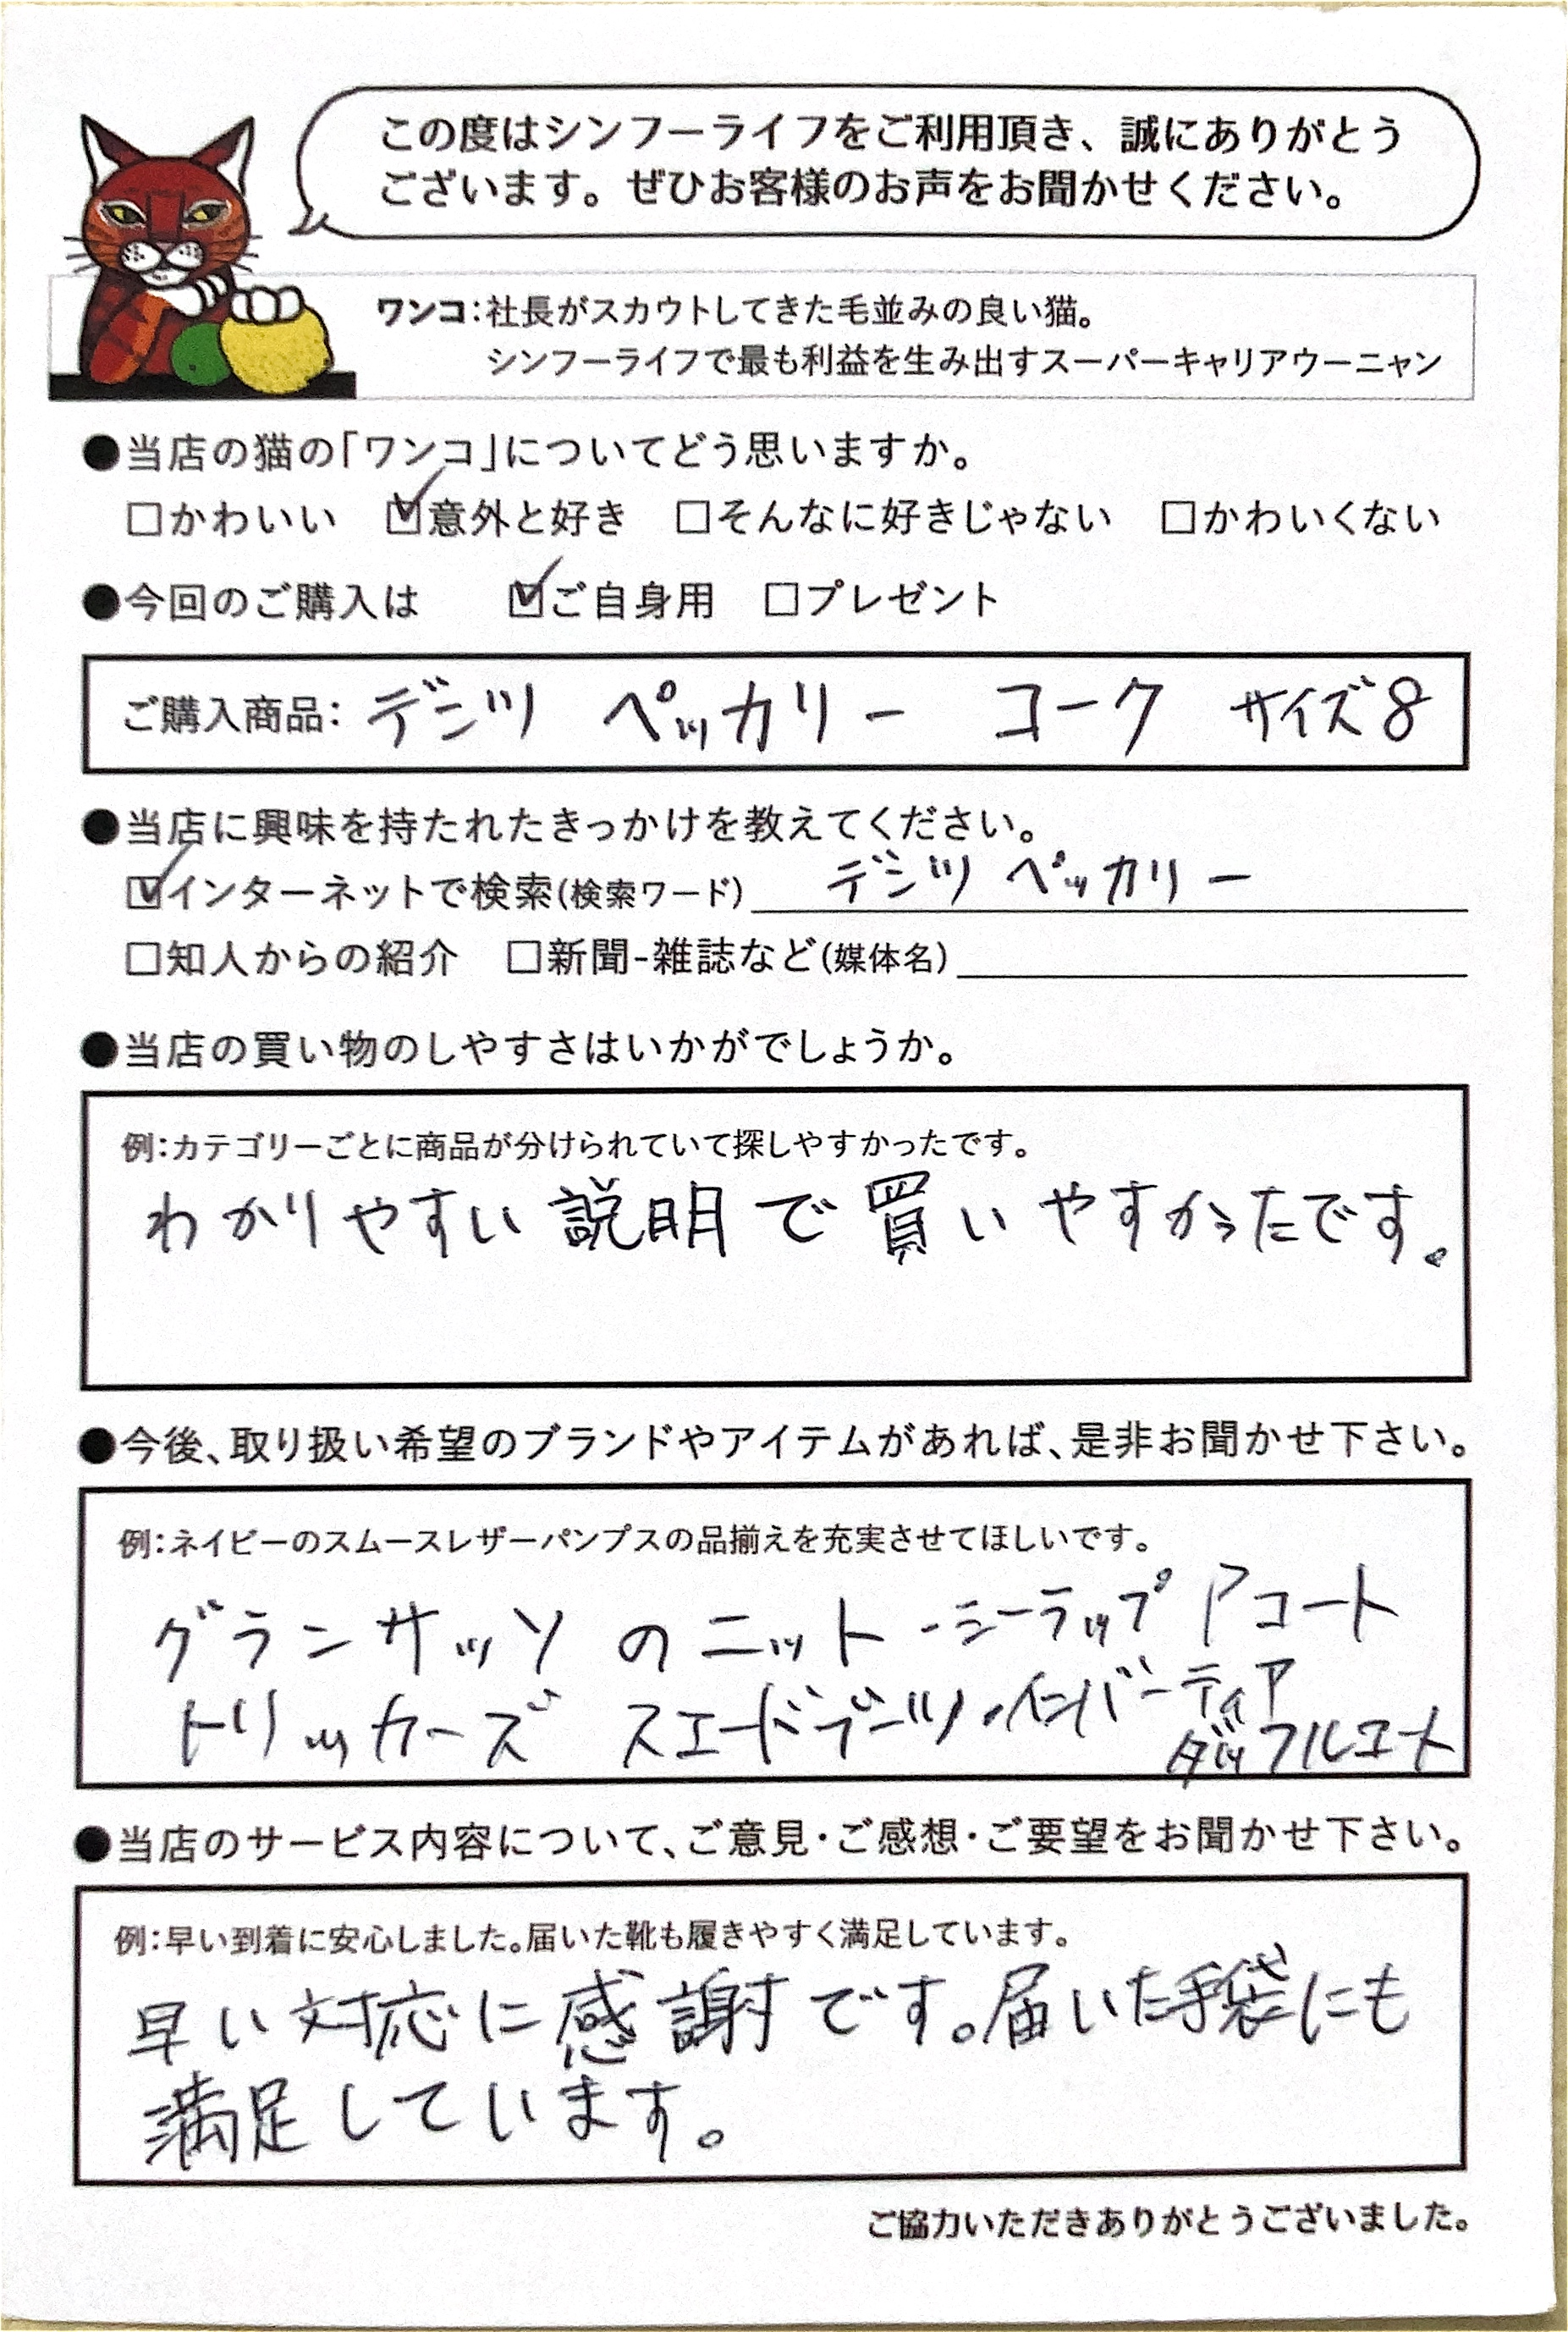 この度はシンフーライフをご利用頂き、誠にありがとう
ございます。ぜひお客様のお声をお聞かせください。
ワンコ:社長がスカウトしてきた毛並みの良い猫。
シンフーライフで最も利益を生み出すスーパーキャリアウーニャン
●当店の猫の「ワンコ」についてどう思いますか。
□かわいい ☑意外と好き □そんなに好きじゃない □かわいくない
●今回のご購入は ☑ご自身用 □プレゼント
ご購入商品: デンツ ペッカリー コーク サイズ8
●当店に興味を持たれたきっかけを教えてください。
☑インターネットで検索(検索ワード) デンツ ペッカリー
□知人からの紹介 □新聞-雑誌など(媒体名)
●当店の買い物のしやすさはいかがでしょうか。
例:カテゴリーごとに商品が分けられていて探しやすかったです。
わかりやすい説明で買いやすかったです。
●今後、取り扱い希望のブランドやアイテムがあれば、是非お聞かせ下さい。
例:ネイビーのスムースレザーパンプスの品揃えを充実させてほしいです。
グランサッソのニット・シーラップ コート
トリッカーズ スエードブーツ・インバーティア
ダッフルコート
●当店のサービス内容について、ご意見・ご感想・ご要望をお聞かせ下さい。
例:早い到着に安心しました。届いた靴も履きやすく満足しています。
早い対応に感謝です。届いた手袋にも
満足しています。
ご協力いただきありがとうございました。